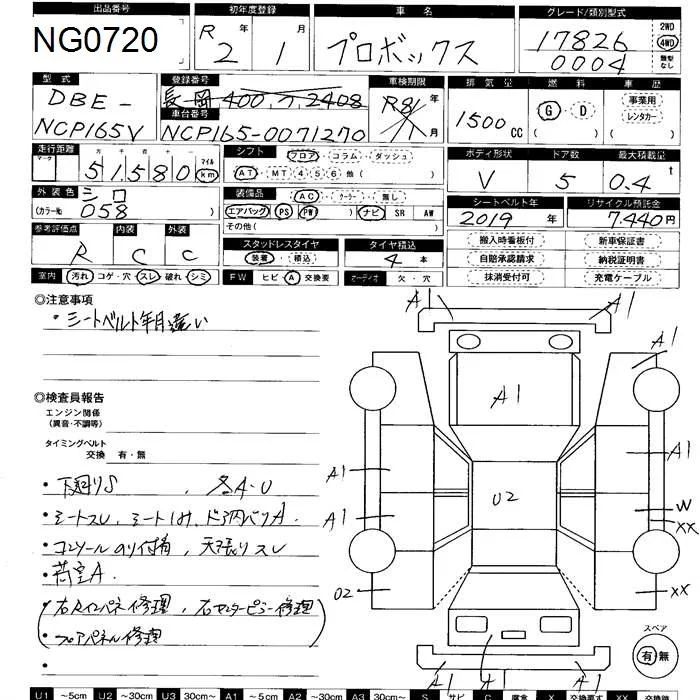 出品番号
NG0720
初年度登録
R 2 年 1 月
車名
プロボックス
グレード/類別型式
17826
0004
2WD
4WD
類型なし
型式
DBE-
NCP165V
登録番号
長岡 400 2408
車台番号
NCP165-0071270
車検期限
R8年
1月
排気量
1500 CC
燃料
G・D
( )
車歴
事業用
レンタカー
( )
走行距離
マーク
万 千 百 十 一
5 1 5 8 0
マイル
km
シフト
フロア・コラム・ダッシュ
AT・MT 4・5・6 他( )
ボディ形状
V
ドア数
5
最大積載量
0.4 t
外装色
シロ
(カラー№) 058
装備品
AC・クーラー・無し
エアバッグ PS PW ( ) ナビ SR AW
その他( )
シートベルト年
2019 年
リサイクル預託金
7,440円
参考評価点
R
内装
C
外装
C
スタッドレスタイヤ
装着・積込
タイヤ積込
4本
搬入時看板付
新車保証書
自賠承認請求
納税証明書
抹消受付可
充電ケーブル
室内 汚れ コゲ・穴 スレ 破れ シミ
FW ヒビ・A 交換要
オーディオ 欠・穴
◎注意事項
・シートベルト年月違い
◎検査員報告
エンジン関係
(異音・不調等)
タイミングベルト
交換 有・無
・下廻りS 、各A・U
・シートスレ、シートしみ、ドア内バリA.
・コンソールのり付有、天張りスレ
・荷室A.
・右Rインパネ修理、右センターピラー修理
・フロアパネル修理
・
A1
A1
A1
A1
A1
A1
U2
W
XX
U2
XX
A1
A1
A1
スペア
有・無
U1 ~5cm U2 ~30cm U3 30cm~ A1 ~5cm A2 ~30cm A3 30cm~ S サビ C 腐食 X 交換要す XX 交換跡